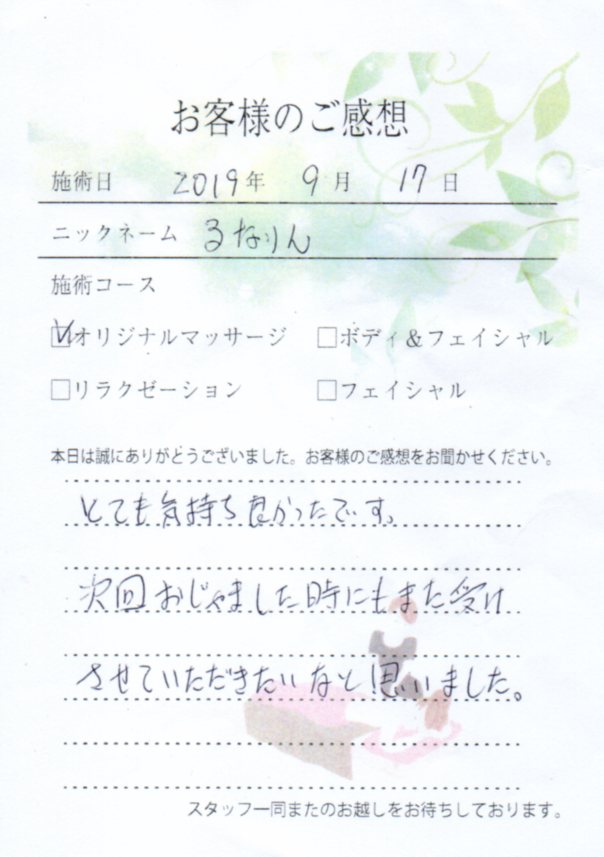 お客様のご感想
施術日 2019年 9月 17日
ニックネーム るなりん
施術コース
☑オリジナルマッサージ □ボディ＆フェイシャル
□リラクゼーション □フェイシャル
本日は誠にありがとうございました。お客様のご感想をお聞かせください。
とても気持ち良かったです。
次回おじゃました時にもまた受け
させていただきたいなと思いました。
スタッフ一同またのお越しをお待ちしております。